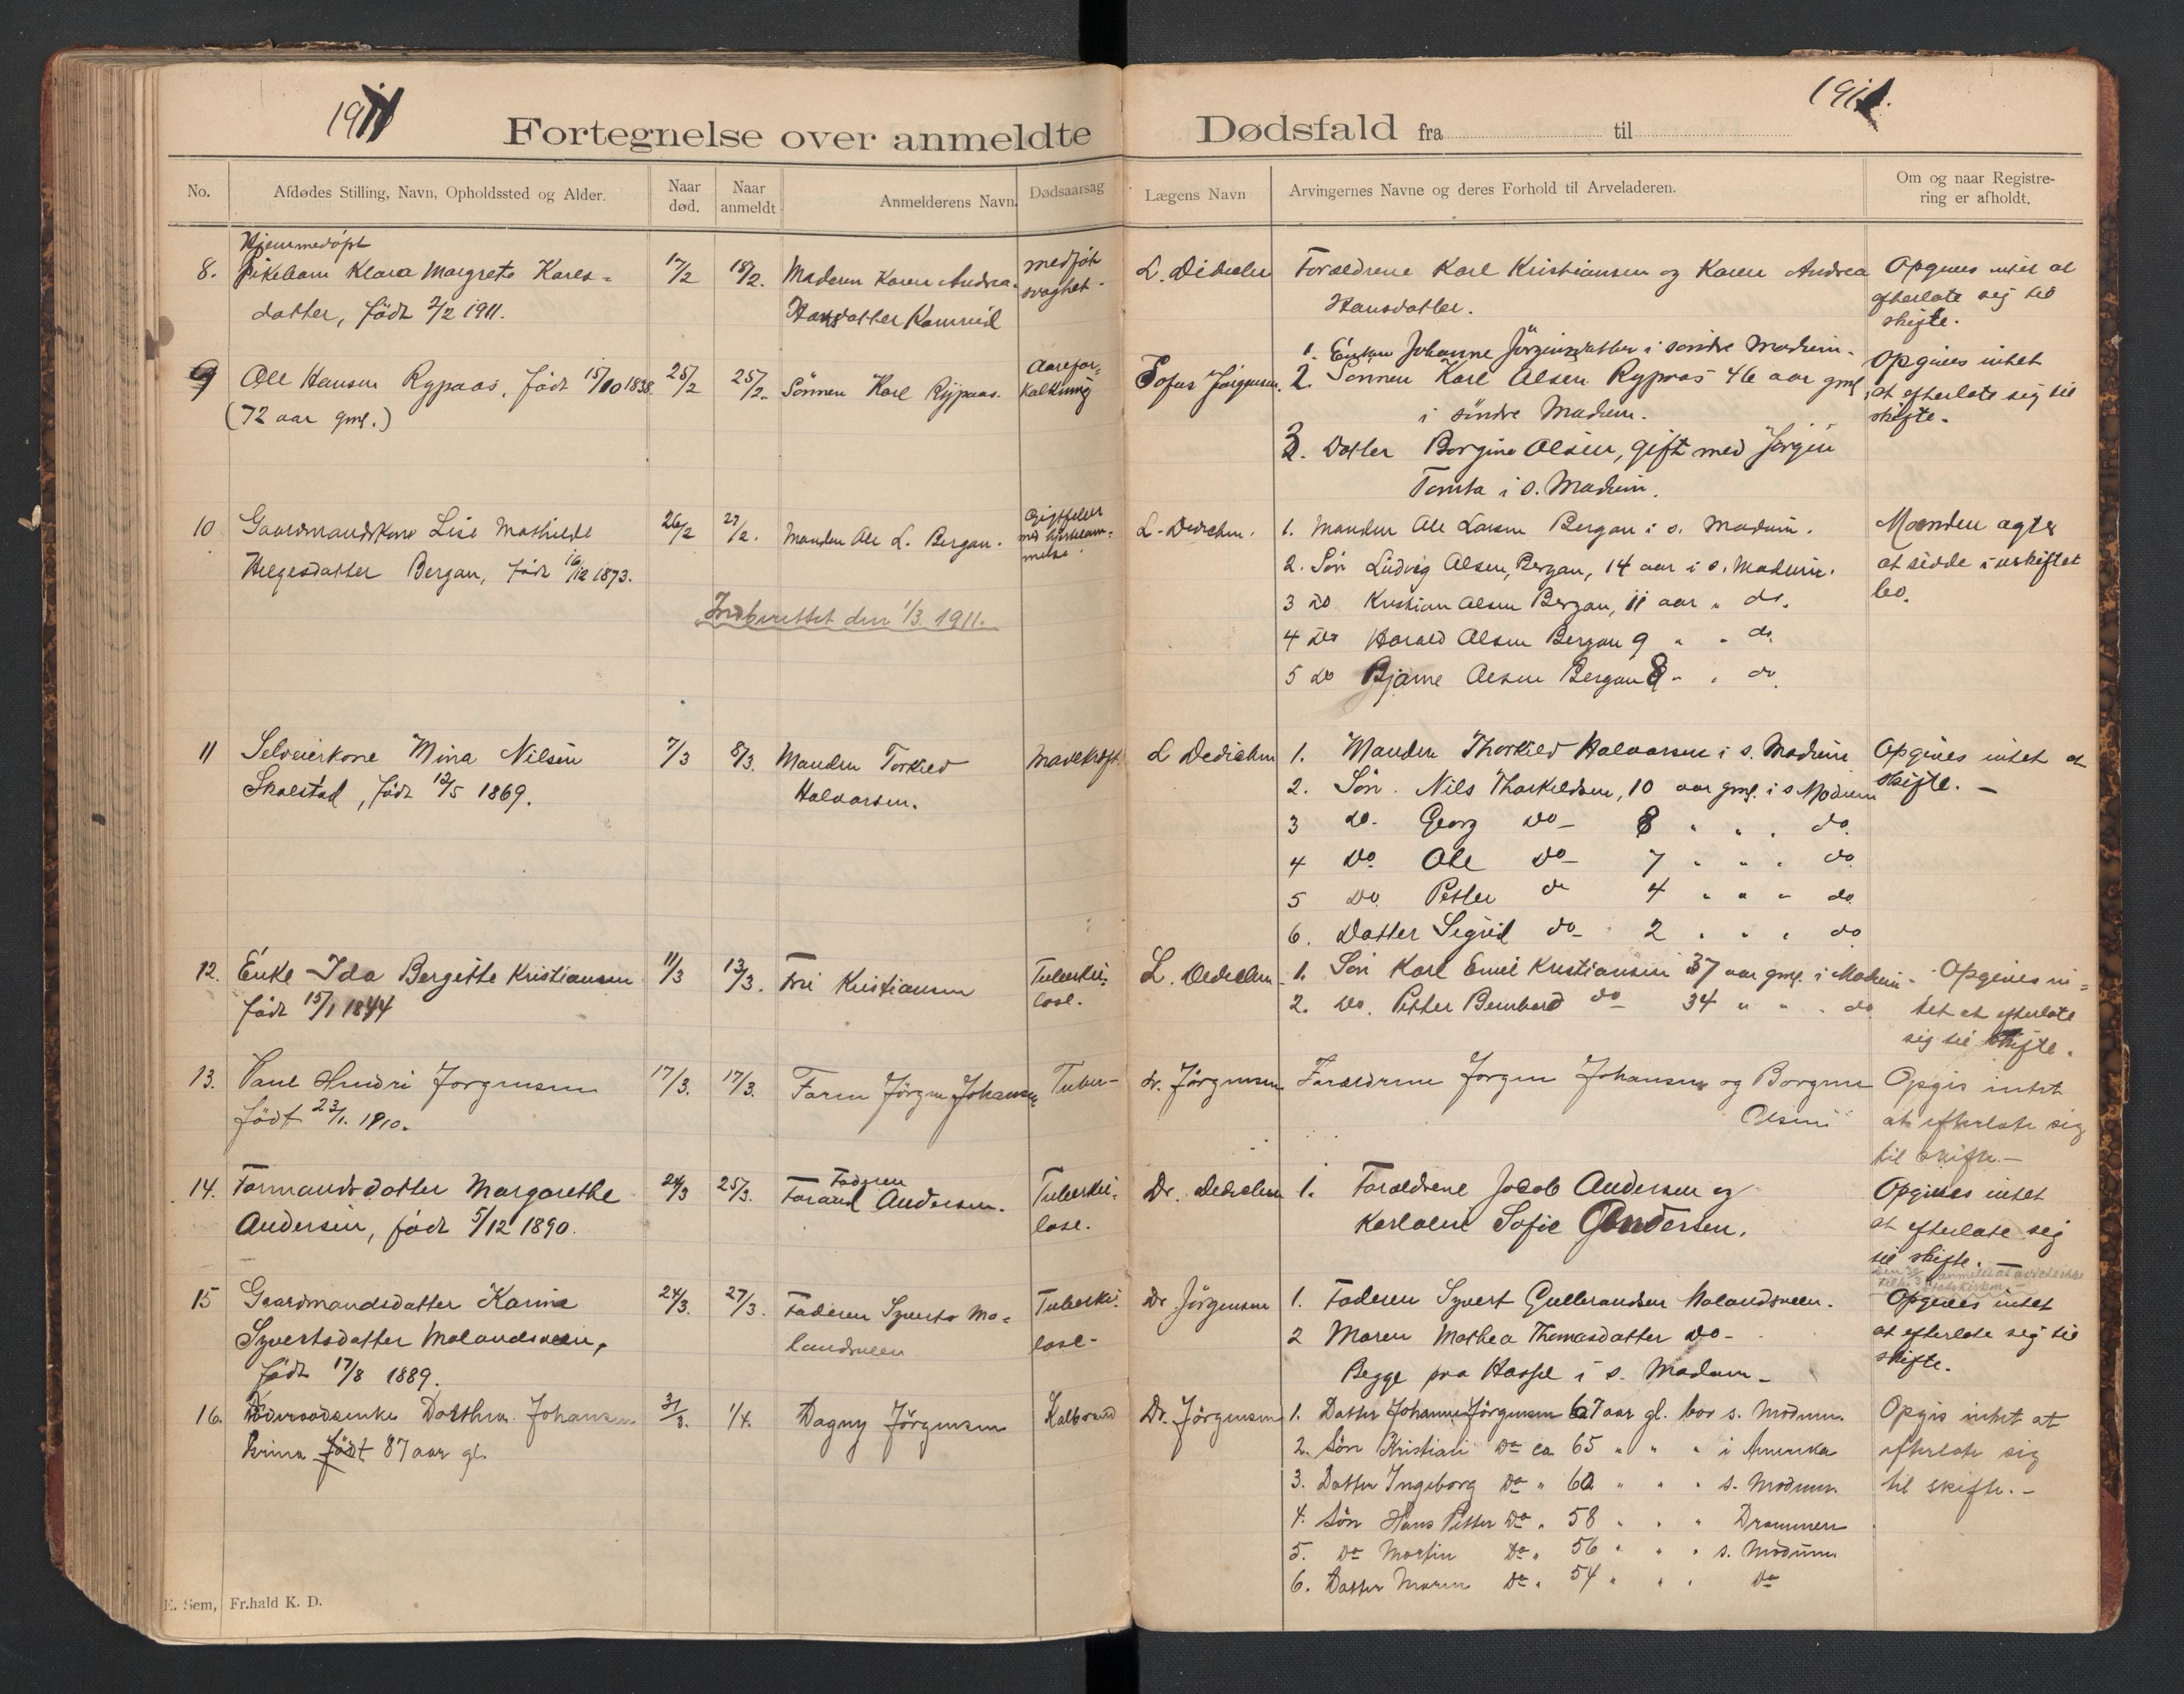 1911
1911.
Fortegnelse over anmeldte Dødsfald fra til
No.
Afdødes Stilling, Navn, Opholdssted og Alder.
Naar død.
Naar anmeldt
Anmelderens Navn.
Dødsaarsag
Lægens Navn
Arvingernes Navne og deres Forhold til Arveladeren.
Om og naar Registrering er afholdt.
Hjemmedøpt
8. Pikebarn Klara Margrete Karls=
datter, født 2/2 1911.
17/2
18/2.
Moderen Karen Andrea
Hansdatter
medføt
svaghet.
L. Dedichen
Forældrene Karl Kristiansen og Karen Andrea
Hansdatter.
Opgives intet at
efterlate sig til
skifte.
9 Ole Hansen Rypaas, født 15/10 1838.
(72 aar gml.)
25/2
25/2.
Sønnen Karl Rypaas.
Aarefor=
kalkning
Tofus Jørgensen.
1. Enken Johanne Jørginsdatter i søndre Modum.
2. Sønnen Karl Olsen Rypaas 46 aar gml.
i søndre Modum.
3. Datter Borgine Olsen, gift med Jørgen
Tomta i s. Modum.
Opgives intet
at efterlate sig til
skifte.
10 Gaardmandskone Lise Mathilde
Helgesdatter Bergan, født 16/12 1873.
26/2
27/2.
Manden Ole L. Bergan.
Gigtfeber
med
L. Dedichen.
1. Manden Ole Larsen Bergan i s. Modum.
2. Søn Ludvig Olsen, Bergan, 14 aar i s. Modum.
3 do Kristian Olsen Bergan, 11 aar " do.
4 Do Harald Olsen Bergan 9 " " do.
5 do Bjarne Olsen Bergan 8 " " do
Manden agter
at sidde i uskiftet
bo.
Indberettet den 1/3 1911.
11 Selveierkone Mina Nilsen
Skalstad, født 12/5 1869.
7/3
8/3.
Manden Torkild
Halvorsen.
Mavekræft.
L Dedichen
1. Manden Thorkild Halvorsen i s. Modum
2. Søn. Nils Thorkildsen, 10 aar gml. i s Modum
3 do. Georg Do - 8 " " " do.
4 Do. Ole Do - 7 " " " do
5 Do. Petter do 4 " " " do
6. Datter Sigrid do - 2 " " " do
Opgives intet at
skifte. -
12. Enke Ida Bergitte Kristiansen
født 15/1 1844
11/3
13/3.
Kristiansen
Tuberku=
lose.
L. Dedichen
1. Søn Karl Emil Kristiansen 37 aar gml. i Modum.
2. Do. Petter Bernhard do - 34 " " " do
Opgives in=
tet at efterlate
sig til skifte.
13. Paul Hendri Jørgensen
født 23/1. 1910.
17/3.
17/3.
Faren Jørgen Johansen
Tuber-
Dr. Jørgensen
Forældrene Jørgen Johansen og Borgine
Olsen
Opgis intet
at efterlate sig
til skifte. -
14. Formandsdatter Margarethe
Andersen, født 5/12 1890.
24/3
25/3.
Faderen
Andersen.
Tuberku=
lose.
Dr. Dedichen
1. Forældrene Jacob Andersen og
Karoline Sofie Andersen.
Opgives intet
at efterlate sig
til skifte. -
15 Gaardmandsdatter Karine
Syvertsdatter Molandsveen,
født 17/8 1889.
24/3.
27/3.
Faderen Syverts Mo=
landsveen
Tuberku=
lose.
Dr Jørgensen
1. Faderen Syvert Gulbrandsen Molandsveen.
2 Moren Mathea Thomasdatter do -
Begge fra Hassel i s. Modum -
Opgives intet
at efterlate sig til
skifte.
16. Dorthea Johansen
født 87 aar gl.
31/3.
1/4.
Dagny Jørgensen
Kolbrand
Dr. Jørgensen
1. Datter Johanne Jørgensen 67 aar gl. bor s. Modum.
2. Søn Kristian Do ca 65 " " " i Amerika
3. Datter Ingeborg Do " 60 " " " s. Modum
4. Søn Hans Petter Do " 58 " " " Drammen
5. Do Martin Do " 56 " " " s. Modum
6. Datter Maren Do " 54 " " " Do
Opgis intet at
efterlate sig
til skifte. -
E. Sem, Fr.hald K. D.